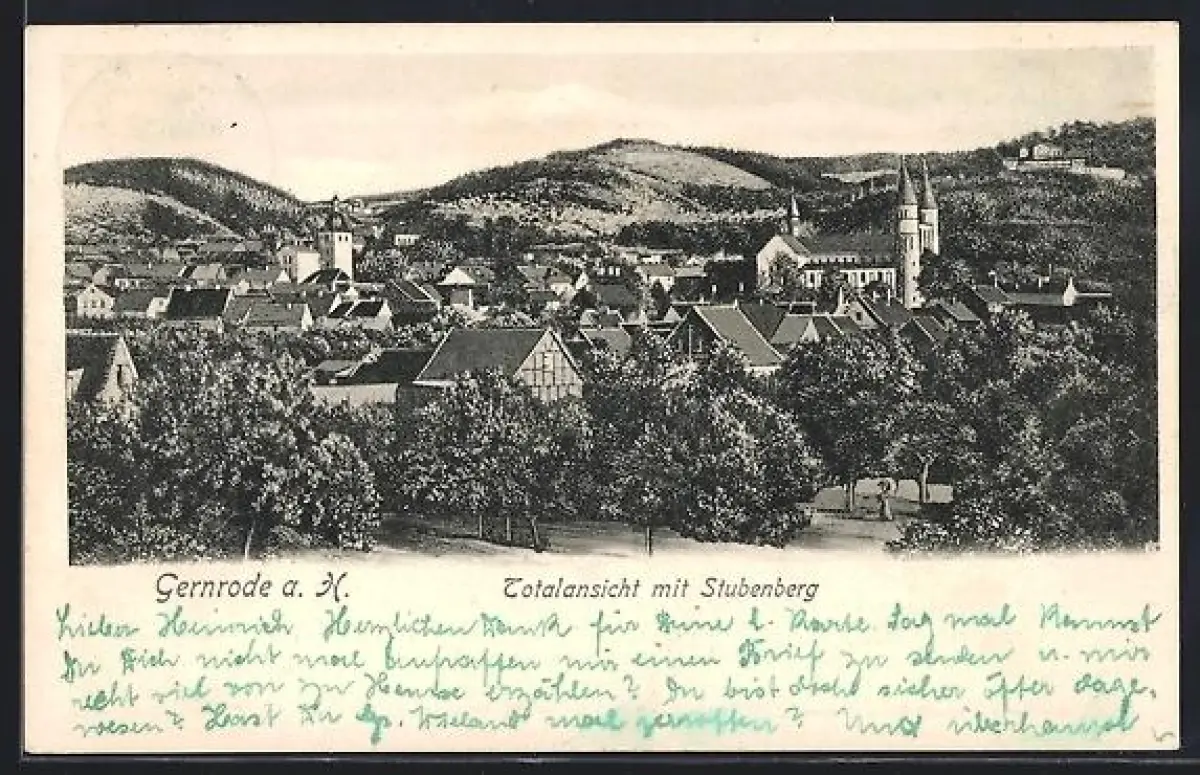 Gernrode a. H. Totalansicht mit Stubenberg
Lieber Heinrich, Herzlichen Dank für Deine l. Karte. Sag mal Kannst
Du Dich nicht mal aufraffen mir einen Brief zu senden u. mir
recht viel von zu Hause erzählen? Du bist doch sicher öfter dage-
wesen? Hast Du Wieland mal getroffen? Und überhaupt